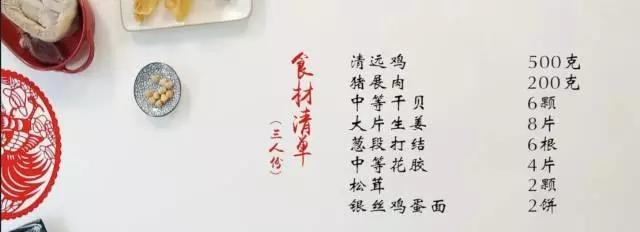 食材清单
(三人份)
清远鸡 500克
猪展肉 200克
中等干贝 6颗
大片生姜 8片
葱段打结 6根
中等花胶 4片
松茸 2颗
银丝鸡蛋面 2饼